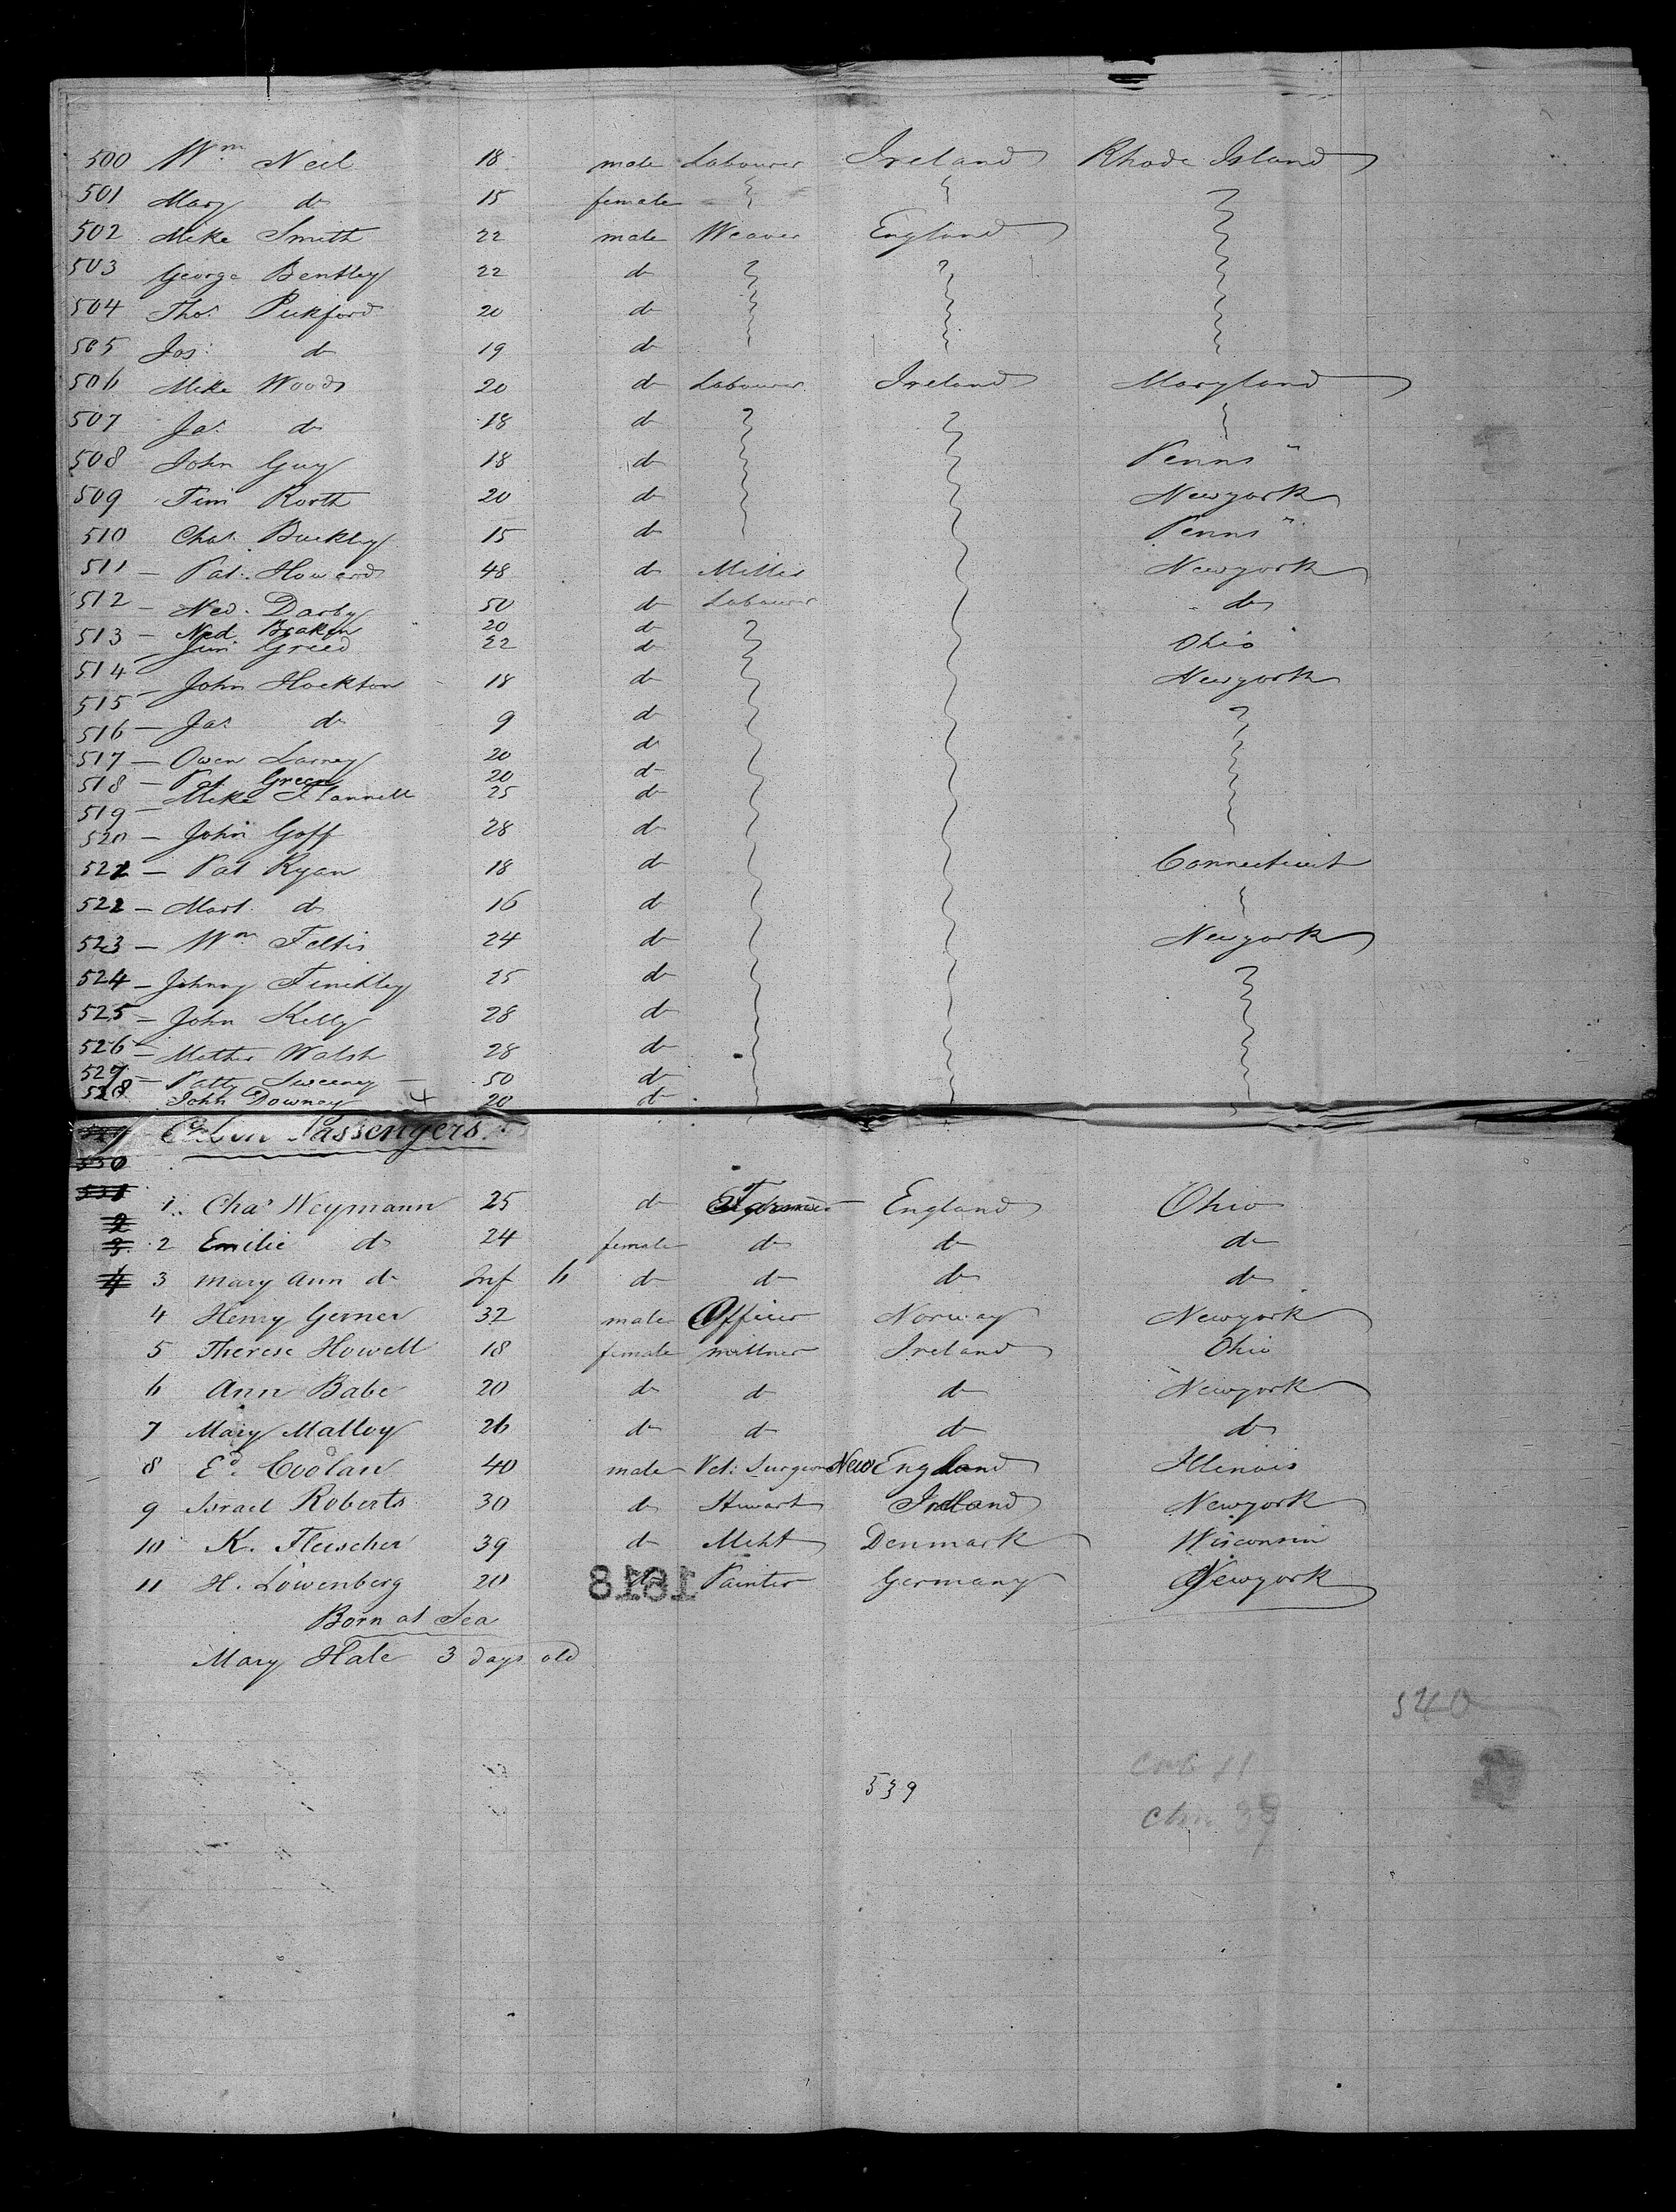 500 Wm Neil 18 male Labourer Ireland Rhode Island
501 Mary do 15 female
502 Mike Smith 22 male Weaver England
503 George Bentley 22 do
504 Thos. Pickford 20 do
505 Jos. do 19 do
506 Mike Woods 20 do Labourer Ireland Maryland
507 Jas. do 18 do
508 John Guy 18 do Penns
509 Tim Rorth 20 do Newyork
510 Chas. Buckley 15 do Penns
511 - Pat. Howard 48 do Miller Newyork
512 - Ned. Darby 50 do Labourer do
513 - Ned. Braken 20 do
Jim Greed 22 do Ohio
514 - John Hockton 18 do Newyork
515
516 - Jas do 9 do
517 - Owen Larney 20 do
518 - Pat Green 20 do
519 - Mike Flannell 25 do
520 - John Goff 28 do
521 - Pat Ryan 18 do Connecticut
522 - Mart. do 16 do
523 - Wm Feltis 24 do Newyork
524 - Johnny Finckley 25 do
525 - John Kelly 28 do
526 - Mathw Walsh 28 do
527 - Patty Sweeney 50 do
528 John Downey + 20 do
529 Cabin Passengers.
530
531 1. Chas Weymann 25 do Farmer England Ohio
2 2 Emilie do 24 female do do do
3 3 Mary Ann do Inf 6 do do do do
4 4 Henry Gerner 32 male Officer Norway Newyork
5 Therese Howell 18 female millner Ireland Ohio
6 Ann Babe 20 do do do Newyork
7 Mary Malloy 26 do do do do
8 Ed. Coolan 40 male Vet. Surgeon New England Illinois
9 Israel Roberts 30 do Stuwart Ireland Newyork
10 K. Fleischer 39 do Mcht Denmark Wisconsin
11 H. Löwenberg 20 do Painter Germany Newyork
1818
Born at Sea
Mary Hale 3 days old
540
539